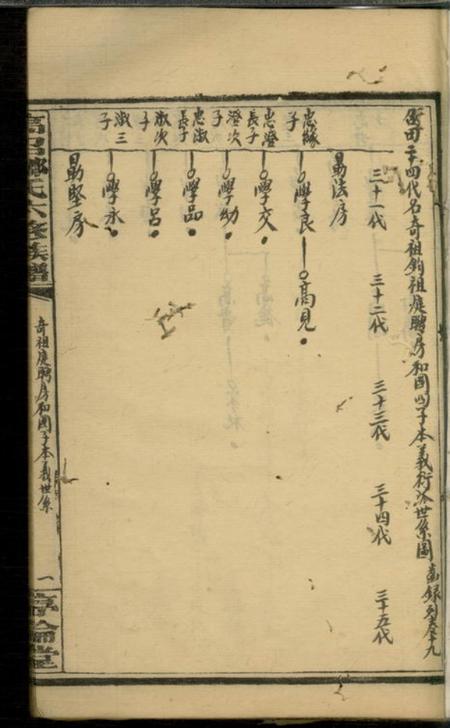 田二十四代名奇祖鈞祖庭聘房和國四子本義衍派世系圖
三十一代
三十二代
三十三代
三十四代
三十五代
易法房
忠緣子
學良
高見
忠澄長子
學交
澄次子
學幼
忠淑長子
學品
淑次子
學呂
淑三子
學永
易堅房
氏六修族譜
奇祖庭聘房和國子本義世系
一
倫堂